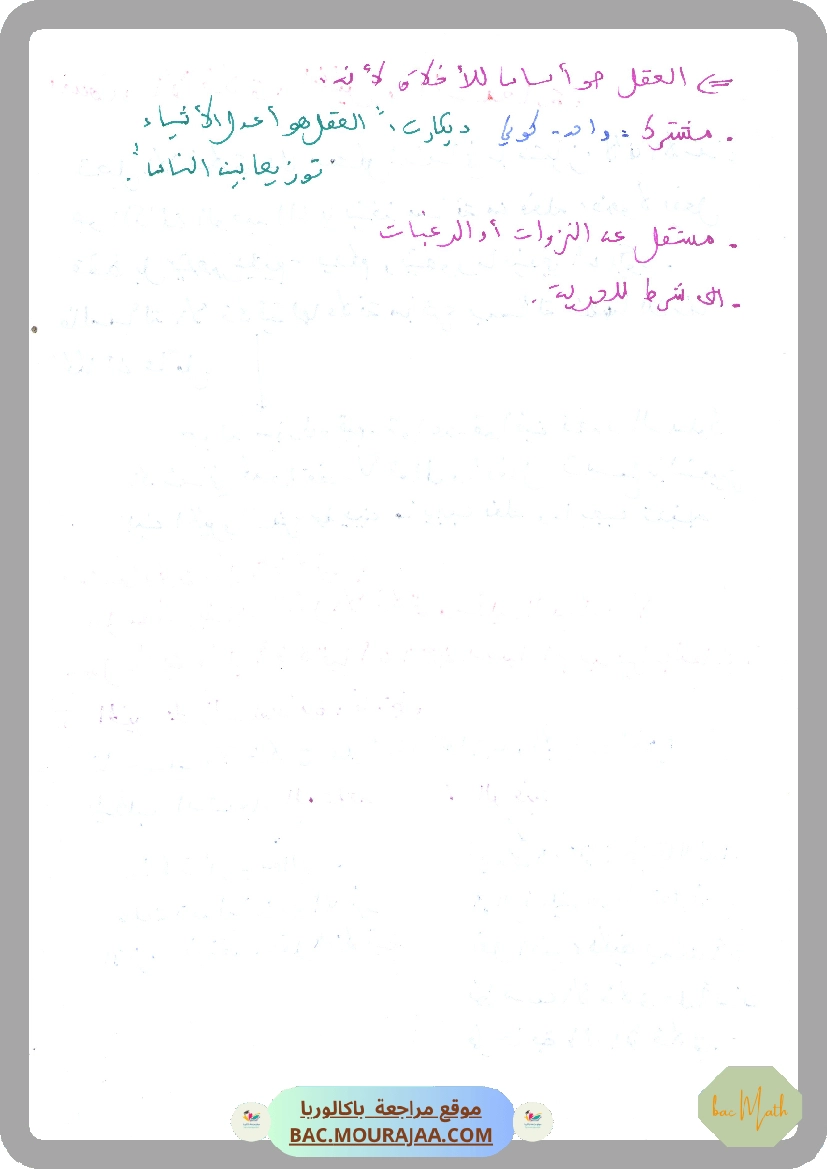 ⇐ العقل هو أساسا للأخلاق لأنه:
. مشترك = واحد - كوني ديكارت: "العقل هو أعدل الأشياء
توزيعا بين الناس".
. مستقل عن النزوات أو الرغبات
. الى شرط للحرية.
موقع مراجعة باكالوريا
BAC.MOURAJAA.COM
bac Math